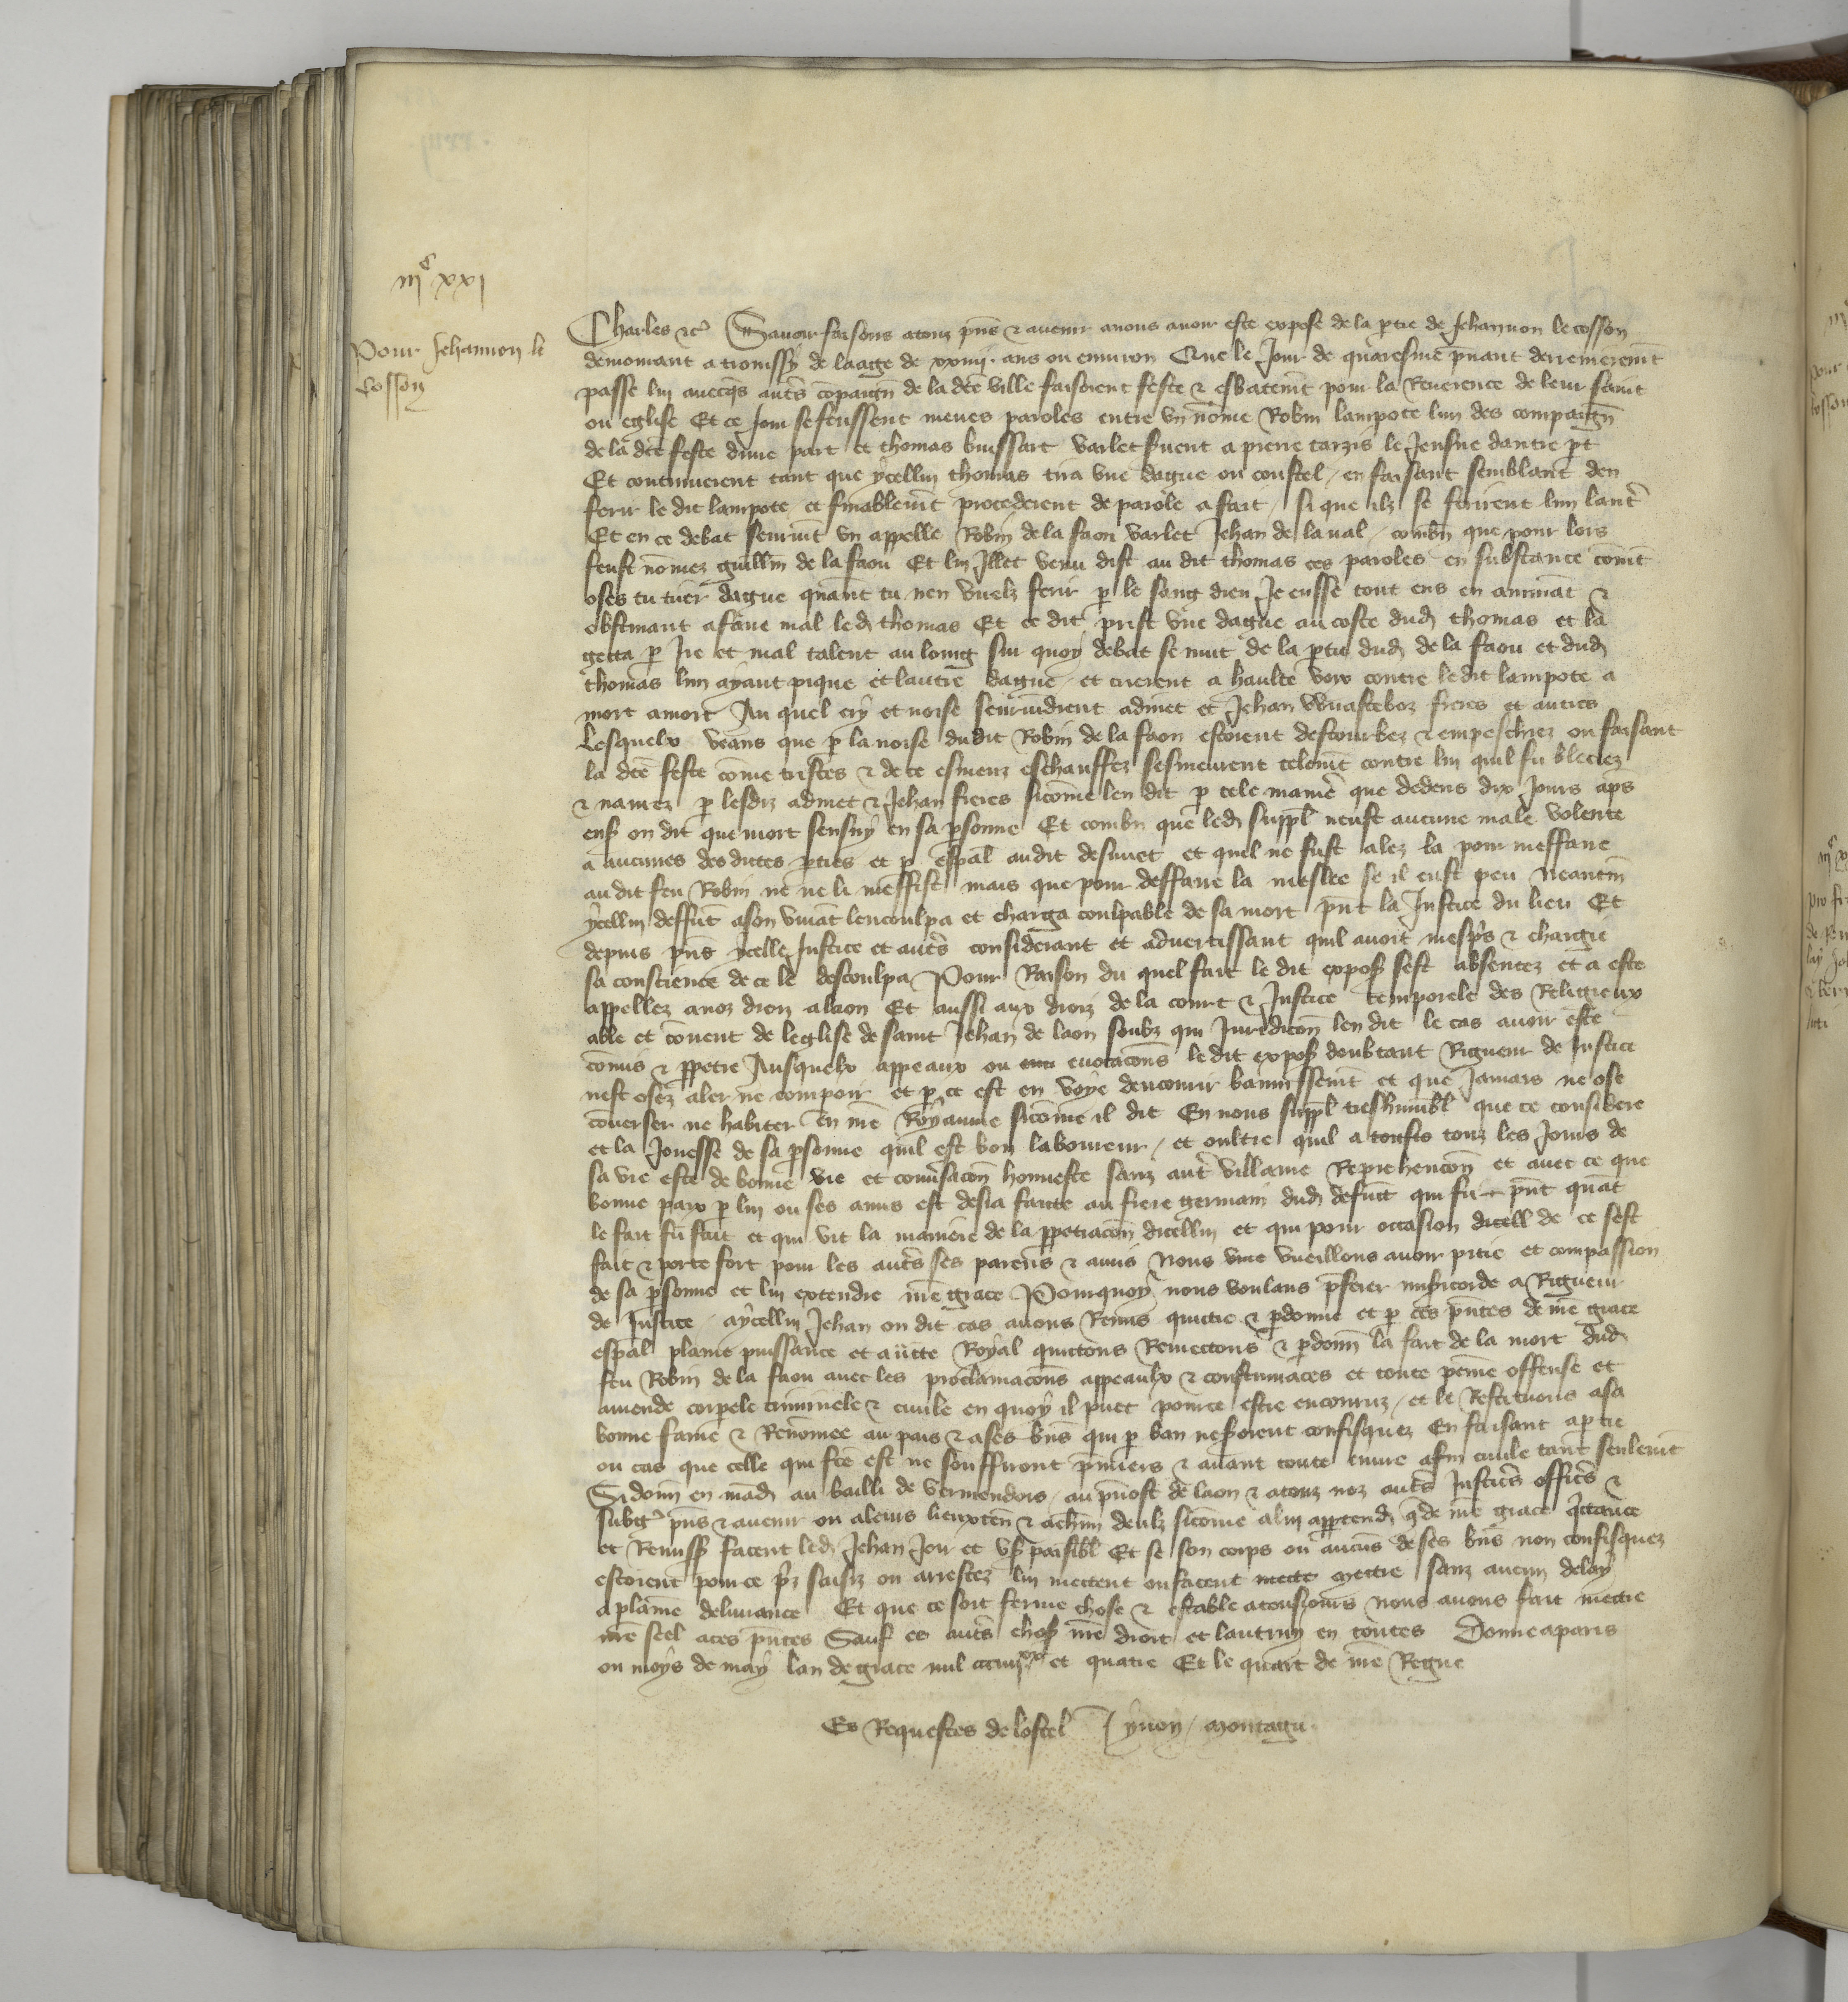 iijᶜ xxj
Pour Jehannon le
cosson
Charles etc Savoir faisons a touz pns & avenir a nous avoir este expose de la ptie de Jehannon le cosson
demourant a de laage de xxiiij ans ou environ Que le Jour de quaresme pnant derreinement
passe lui avecqs auts compaign de la dce ville faisoient feste & esbatemt pour la Reverence de leur saint
ou eglise Et ce Jour se feussent meues paroles entre un nome Robin lampote lun des compaign
de la dce feste dune part et thomas buissart varlet a pierre le Jeusne dautre pt
Et continuerent tant que ycellui thomas tira une dague ou coustel / en faisant semblant den
ferir le dit lampote et finablemt procederent de parole a fait / si que ilz se ferirent lun lautr
Et en ce debat seurvint un appelle Robin de la faou varlet Jehan de laval / combn que pour lors
feust nomez guillm de la faou Et lui Illec venu dist au dit thomas ces paroles en substance comt
oses tu tirer dague quant tu nen veulz ferir p le sang dieu Je eusse tout ens en animat &
obstinant a faire mal led thomas Et ce dit prist une dague au coste dud thomas et la
getta p Ire et mal talent au loing sur quoy debat se mut de la ptie dud de la faou et dud
thomas lun ayant pique et lautre dague / et crierent a haulte voix contre le dit lampote a
mort a mort Au quel cry et noise seurvindrent admet et Jehan freres et autres
Lesquelx veans que p la noise dudit Robin de la faou estoient destourbez & empeschiez ou faisant
la dce feste come tristes & de ce esmeuz eschauffez sesmeurent telemt contre lui quil fu bleciez
& navrez p lesdiz admet & Jehan freres sicome len dit p tele manie que dedens dix Jours aps
ens on dit que mort sensuy en sa psonne Et combn que led suppl neust aucune male volente
a aucunes des dites pties et p espal au dit et quil ne fust alez la pour meffaire
au dit feu Robin ne ne li meffist mais que pour deffaire la meslee se il eust peu Neantm
ycellui deffut a son vivat lencoulpa et charga coulpable de sa mort pnt la Justice du lieu Et
depuis pns ycelle Justice et auts considerant et advertissant quil avoit mespris & chargie
sa conscience de ce le descoulpa Pour Raison du quel fait le dit expos sest absentez et a este
appellez a noz droiz a laon Et aussi aux droiz de la court & Justice temporele des Religieux
abbe et covent de leglise de saint Jehan de laon soubz qui Juridicon len dit le cas avoir este
comis & ppetre Ausquelx appeaux ou evocacons le dit expos doubtant Rigueur de Justice
nest osez aler ne compoir et p ce est en voye dencourir bannissemt et que Jamais ne ose
converser ne habiter en nre Royaume sicome il dit En nous suppl treshumbl que ce considere
et la Jonesse de sa psonne quil est bon laboureur / et oultre quil a touzis touz les Jours de
sa vie este de bonne vie et conversacon honneste sanz autr villaine Reprehencion et avec ce que
bonne paix p lui ou ses amis est desia faitte au frere germain dud defunt qui fu pnt quat
le fait fu fait et qui vit la maniere de la ppetracon dicellui et qui pour occasion dicell de ce sest
fait & porte fort pour les auts ses parens & amis Nous vueillons avoir pitie et compassion
de sa psonne et lui extendre nre grace Pourquoy nous voulans pferer misicorde a Rigueur
de Justice / aycellui Jehan ou dit cas avons Remis quictie & pdonne et p ces pntes de nre grace
espal plaine puissance et autte Royal quictons Remectons & pdonn la fait de la mort dud
feu Robin de la faou avec les proclamacons appeaulx & constumaces et toute peine offense et
amende corpele criminele & civile en quoy il puet pource estre encouruz / et le Restituons a sa
bonne fame & Renomee au pais & a ses bns qui p ban ne seroient confisquez En faisant a ptie
ou cas que celle qui fce est ne souffiront pmiers & avant toute euvre afin civile tant seulemt
Si donn en mad au bailli de vermendois / au pvost de laon & a touz noz auts Justicrs officrs &
subgez pns & avenir ou a leurs lieuxten & achun deulz sicome a lui apptend q de nre grace qctance
et Remiss facent led Jehan Joir et us paisibl Et se son corps ou aucuns de ses bns non confisquez
estoient pource pris saisiz ou arrestez lui mectent ou facent mette mectre sanz aucun delay
a plaine delivrance Et que ce soit ferme chose & estable a tousiours nous avons fait mectre
nre seel a ces pntes Sauf es auts choses nre droit et lautruy en toutes Donne a paris
ou moys de may lan de grace mil ccciiijˣˣ et quatre Et le quart de nre Regne
Es Requestes de lostel J ynoy / Montagu